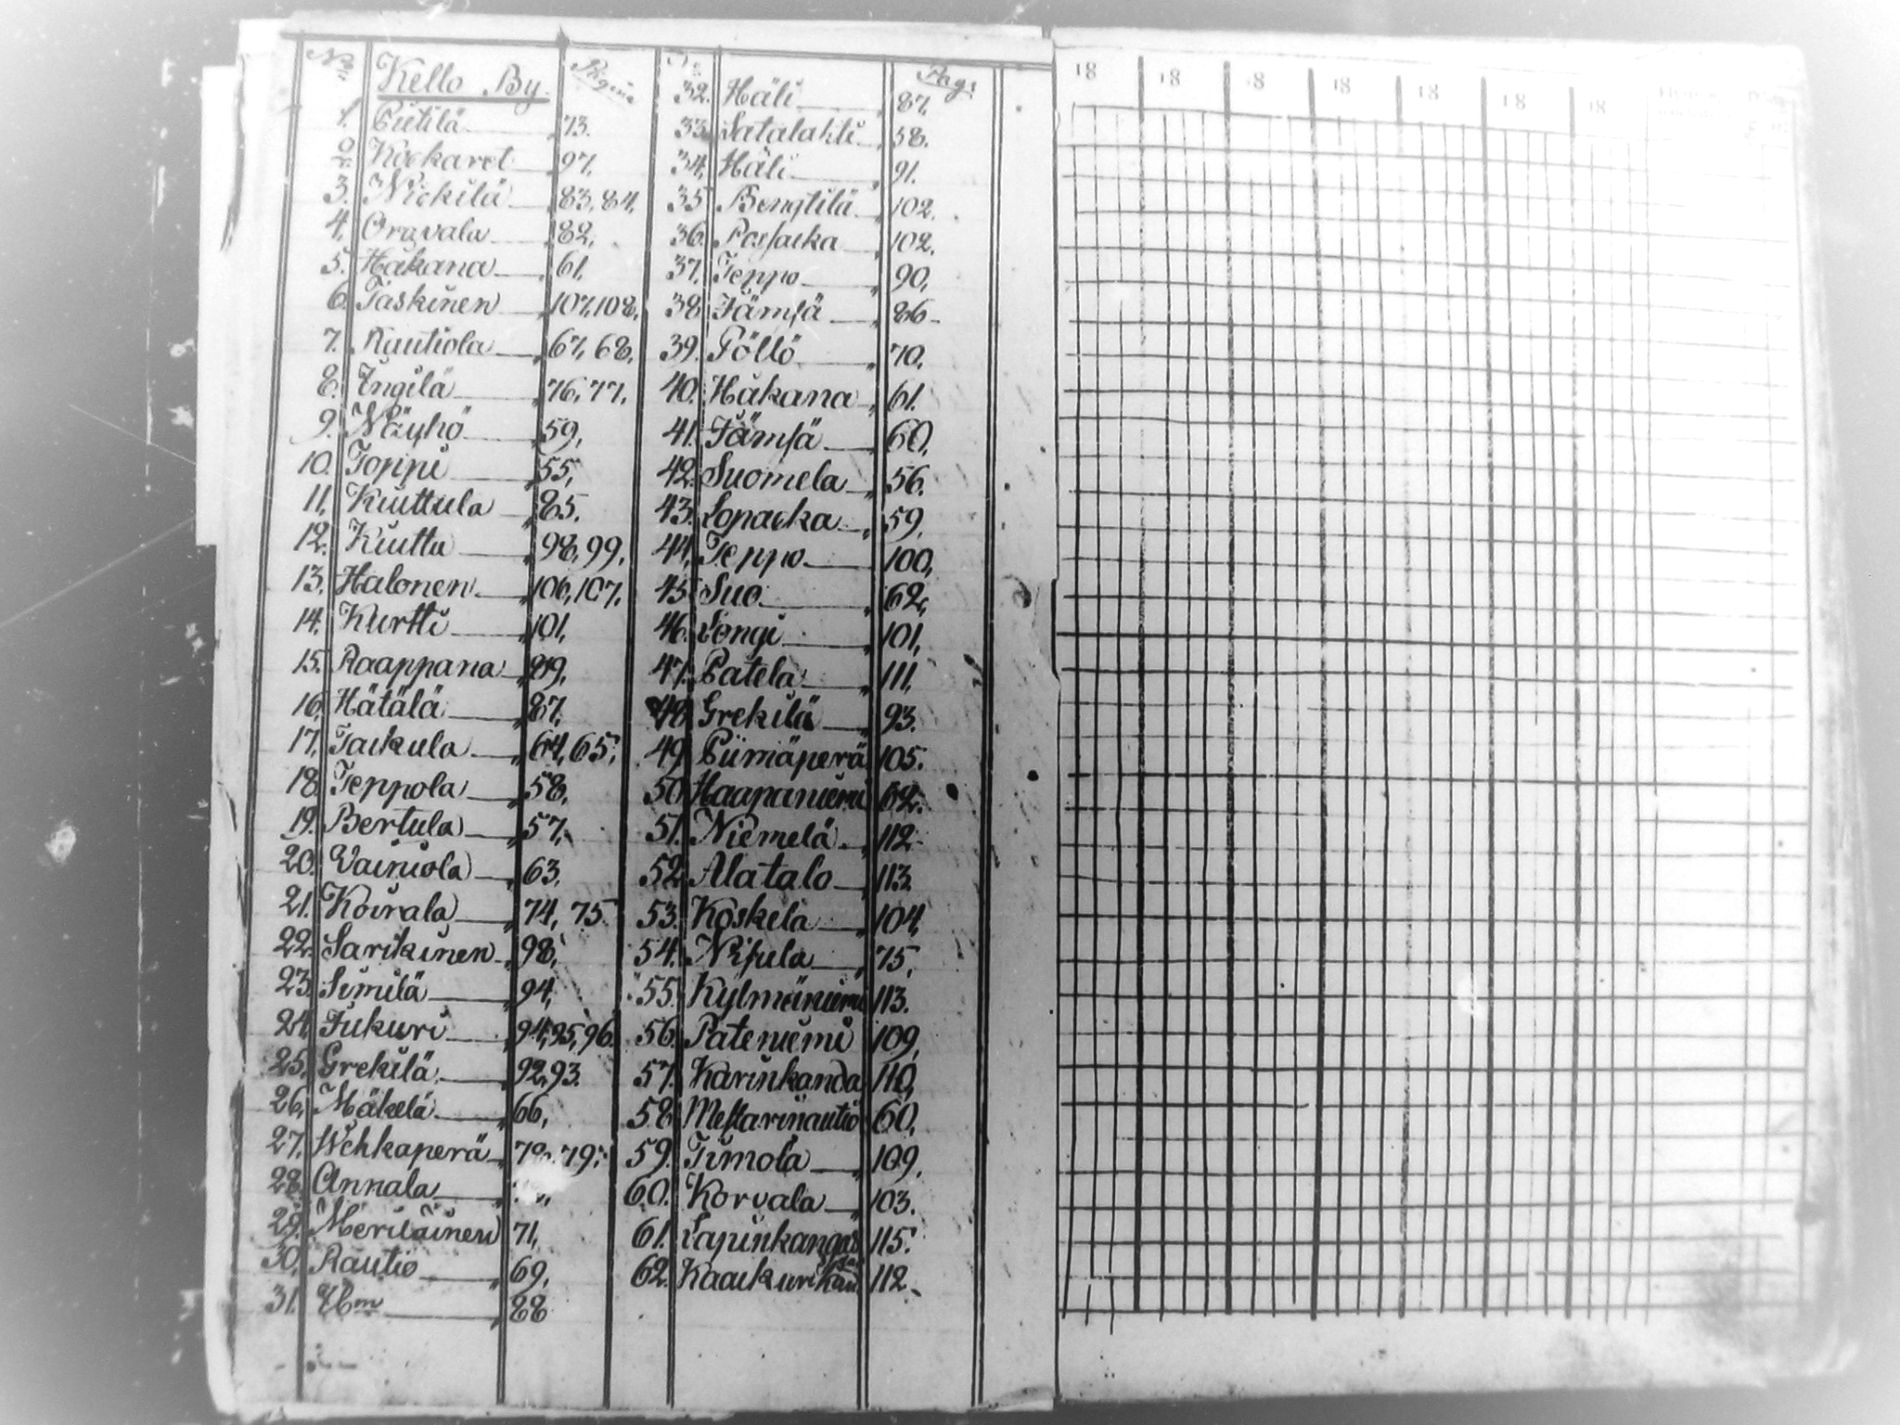 No Kello By. Pagina
1. Pietilä 73.
2. Kockaret 97.
3. Nickilä 83, 84.
4. Oravala 82.
5. Hakana 61.
6. Taskinen 107, 108.
7. Rautiola 67, 68.
8. Engilä 76, 77.
9. Näyhö 59,
10. Toppi 55,
11. Kiuttula 85.
12. Kiuttu 98, 99,
13. Halonen 106, 107.
14. Kurtti 101,
15. Raappana 89,
16. Hätälä 87,
17. Taikula 64, 65,
18. Teppola 58,
19. Bertula 57,
20. Vainiola 63,
21. Koirala 74, 75.
22. Sarikinen 98,
23. Similä 94,
24. Jukuri 94, 95, 96.
25. Grekilä 92, 93.
26. Mäkelä 66,
27. Wehkaperä 79.
28. Annala
29. Meriläinen 71,
30. Rautio 69,
31. 88
No Pag:
32. Häli 87.
33. Satalahti 58.
34. Häli 91.
35 Bengtilä 102.
36. 102.
37. Teppo 90,
38 Jämsä 86
39. Pöllö 70.
40. Hakana 61.
41. Jämsä 60,
42. Suomela 56.
43. Lopacka 59,
44. Teppo 100,
45 Suo 62,
46. Longi 101,
47. Patela 111,
48 Grekilä 93.
49 Piimäperä 105.
50 Haapaniemi 62.
51. Niemelä 112.
52 Alatalo 113.
53. Koskela 104,
54. Nisula 75,
55. Kylmäniemi 113.
56. Pateniemi 109,
57. Karinkanda 110,
58. Mestarinautio 60,
59. Timola 109.
60. Korvala 103.
61. Lapinkangas 115.
62. 112.
18 18 18 18 18 18 18